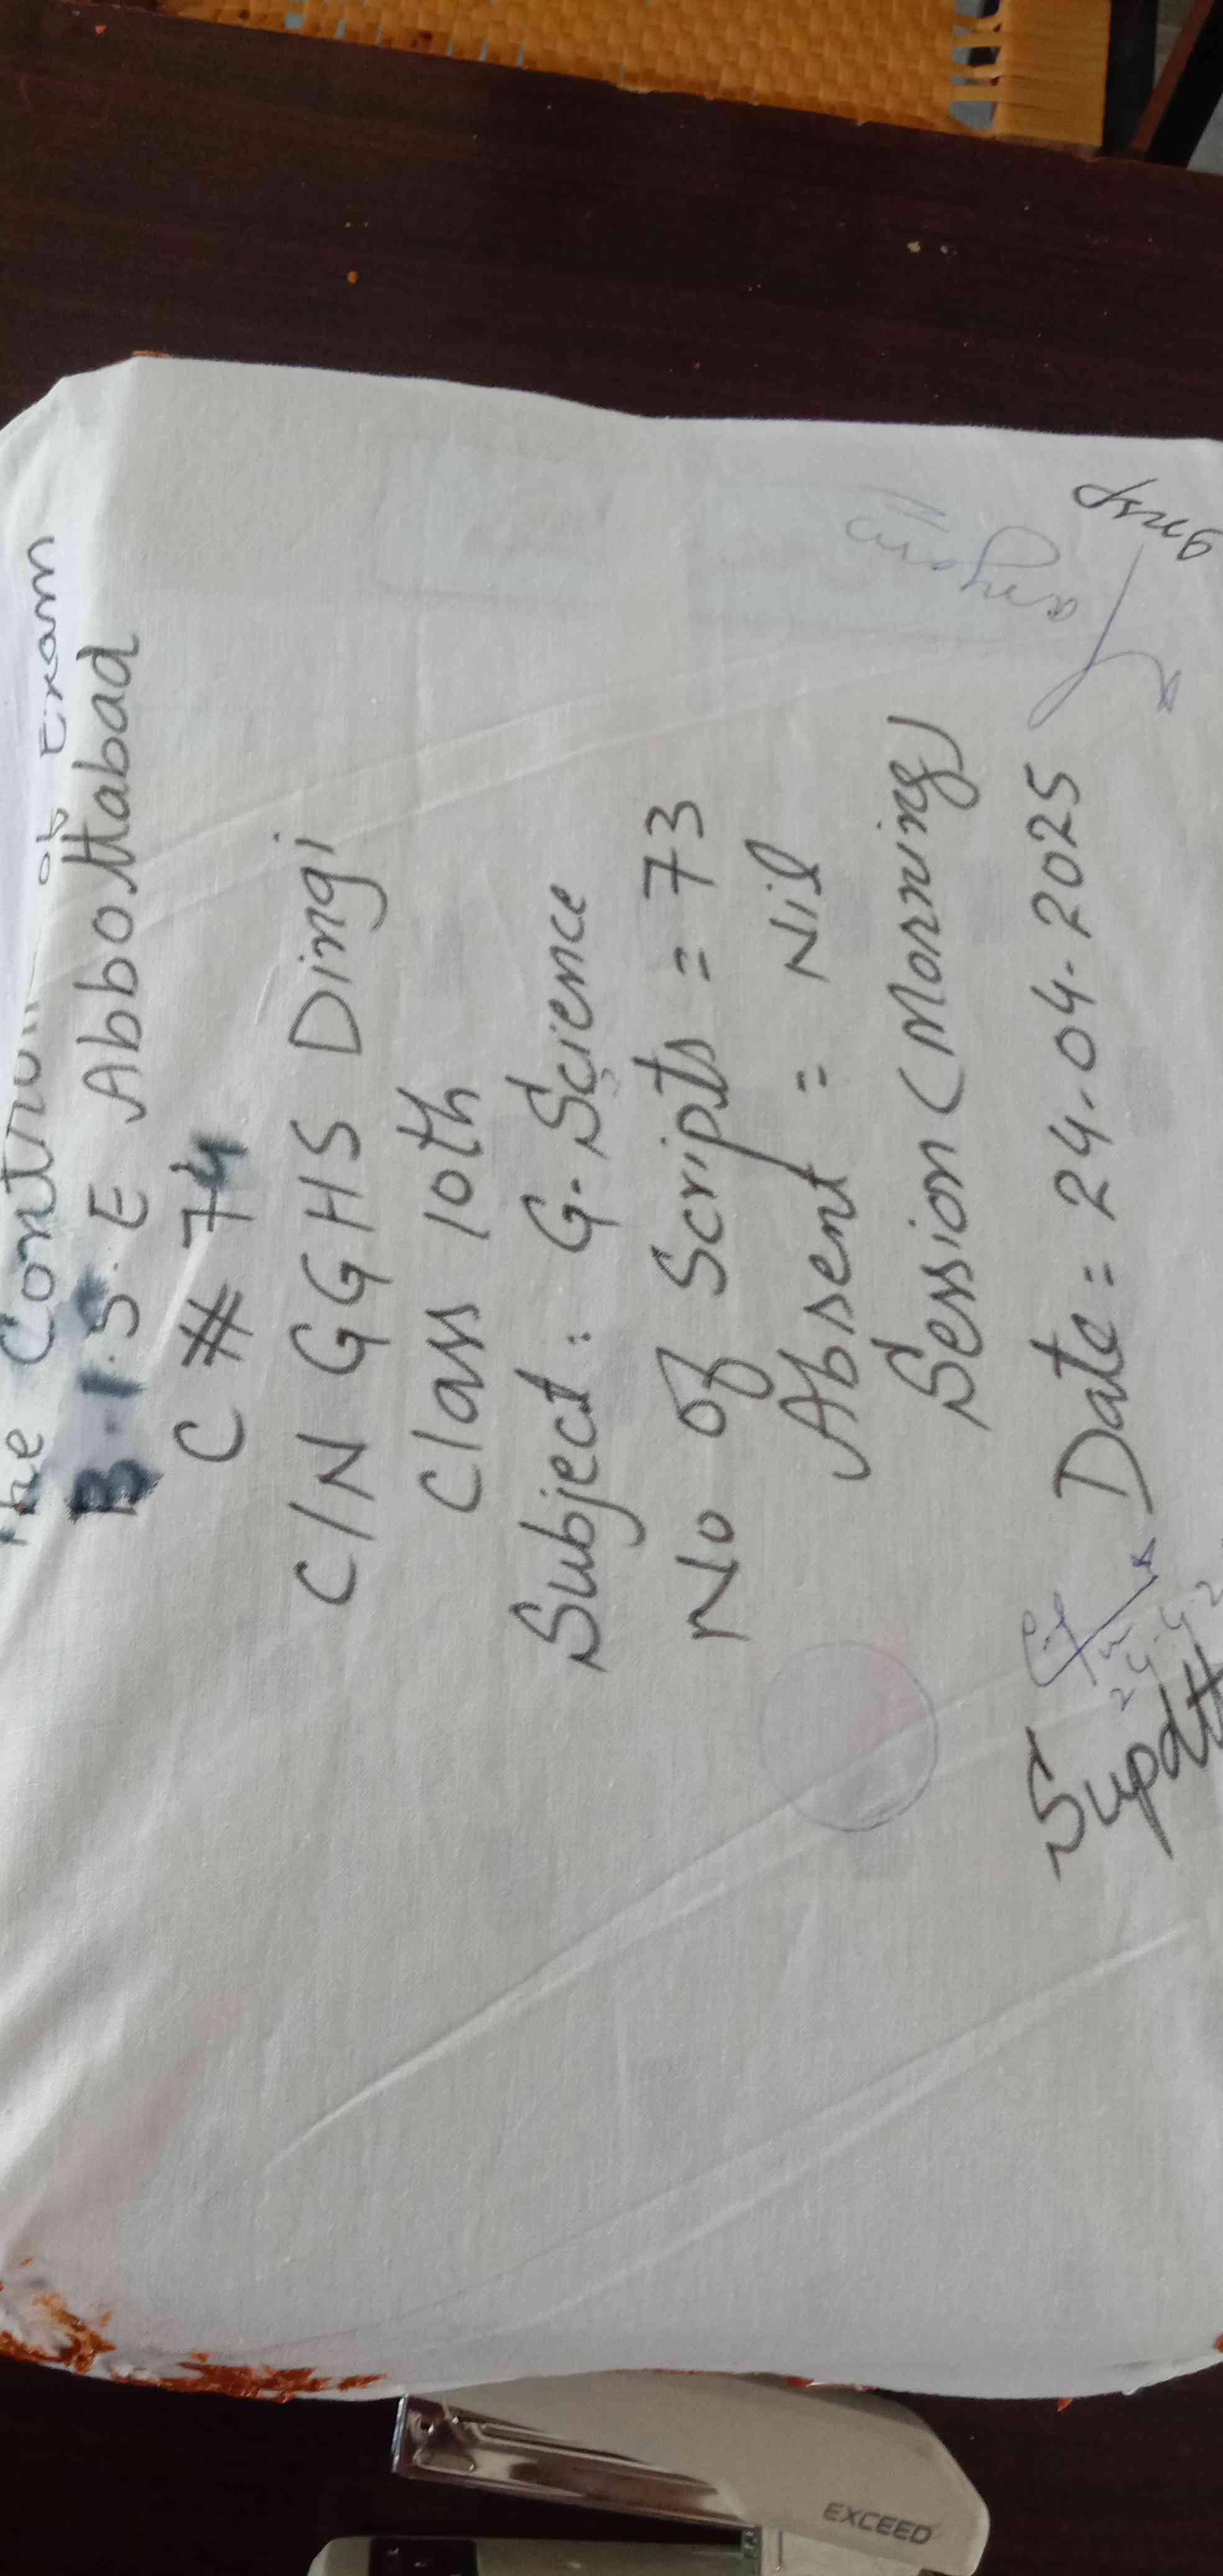 the Controll of Exam
B.I.S.E Abbottabad
C # 74
C/N GGHS Dingi
Class 10th
Subject: G.Science
No of Scripts = 73
Absent = Nil
Session (Morning)
Date = 24.04.2025
Supdtt
Insp
EXCEED